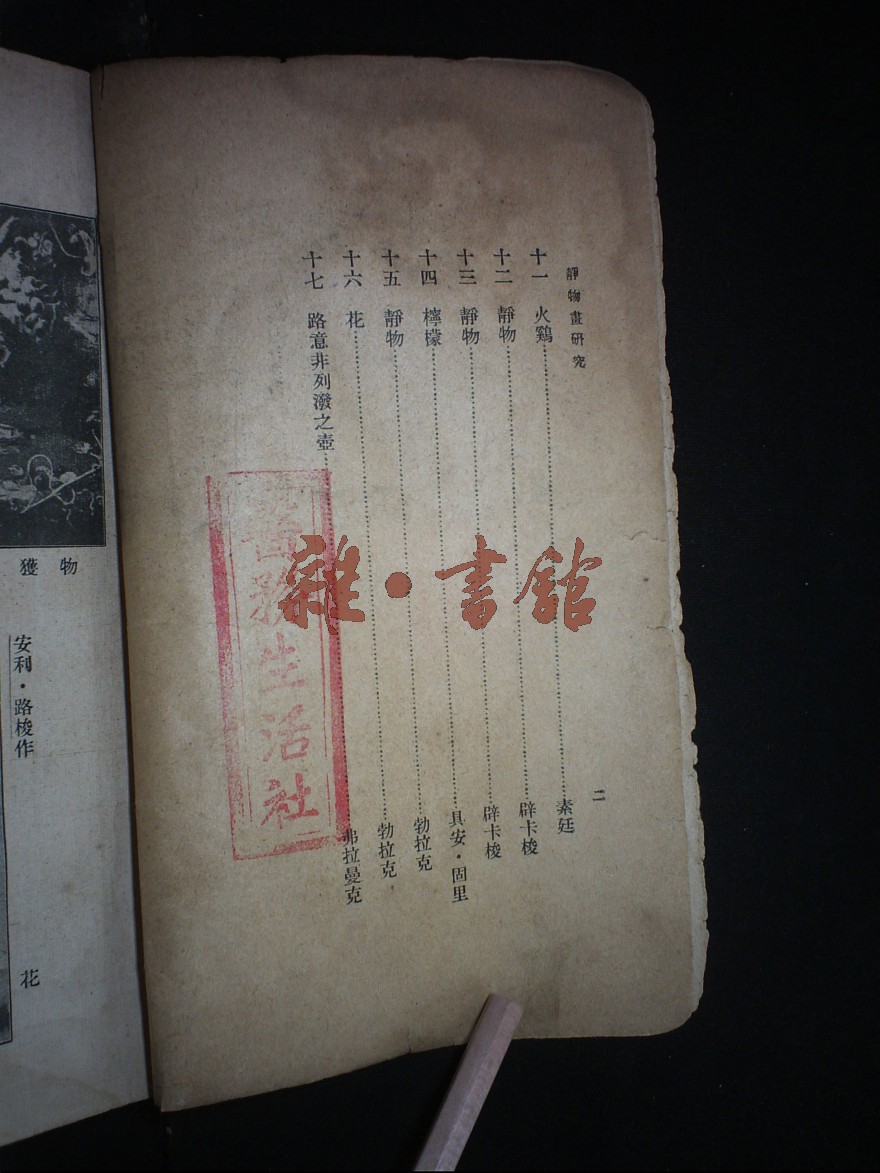 靜物畫研究
二
十一　火鷄……素廷
十二　靜物……辟卡梭
十三　靜物……辟卡梭
十四　檸檬……具安・固里
十五　靜物……勃拉克
十六　花……勃拉克
十七　路意非列潑之壺……弗拉曼克
醫務生活社
雜・書館
獲物
安利・路梭作
花